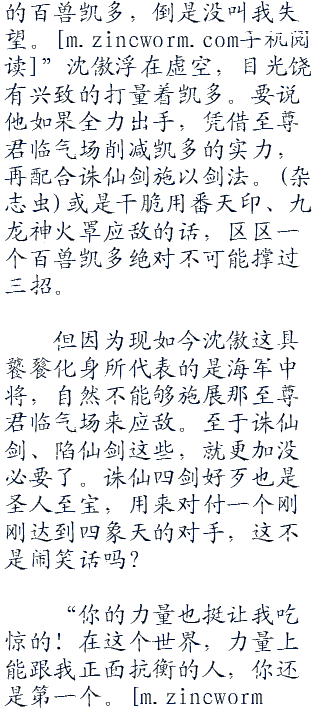 的百兽凯多，倒是没叫我失
望。[m.zincworm.com手机阅
读]”沈傲浮在虚空，目光饶
有兴致的打量着凯多。要说
他如果全力出手，凭借至尊
君临气场削减凯多的实力，
再配合诛仙剑施以剑法。(杂
志虫)或是干脆用番天印、九
龙神火罩应敌的话，区区一
个百兽凯多绝对不可能撑过
三招。
但因为现如今沈傲这具
饕餮化身所代表的是海军中
将，自然不能够施展那至尊
君临气场来应敌。至于诛仙
剑、陷仙剑这些，就更加没
必要了。诛仙四剑好歹也是
圣人至宝，用来对付一个刚
刚达到四象天的对手，这不
是闹笑话吗？
“你的力量也挺让我吃
惊的！在这个世界，力量上
能跟我正面抗衡的人，你还
是第一个。[m.zincworm